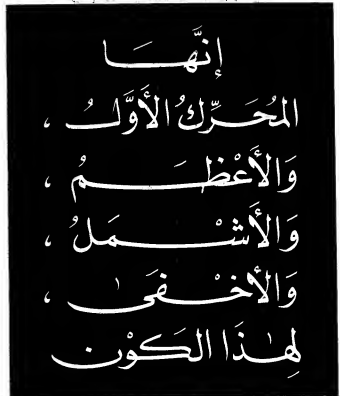 إنَّهَا
المُحَرِّكُ الأَوَّلُ ،
وَالأَعْظَمُ ،
وَالأَشْمَلُ ،
وَالأَخْفَى ،
لِهٰذَا الكَوْنِ